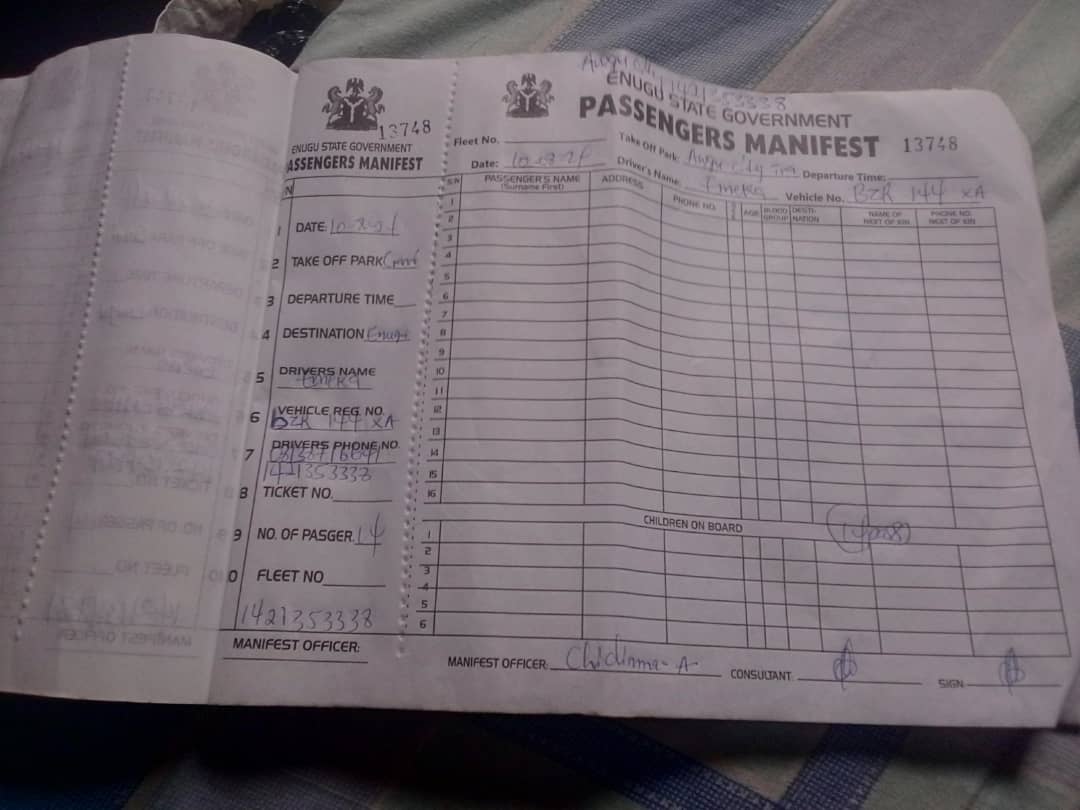 13748
ENUGU STATE GOVERNMENT
ASSENGERS MANIFEST
N
1 DATE:
2 TAKE OFF PARK
3 DEPARTURE TIME
4 DESTINATION Enugu
5 DRIVERS NAME
Emeka
6 VEHICLE REG. NO.
BZR 144 XA
7 DRIVERS PHONE NO.
1421353338
8 TICKET NO.
9 NO. OF PASGER. 14
0 FLEET NO
1421353338
MANIFEST OFFICER:
1421353338
ENUGU STATE GOVERNMENT
PASSENGERS MANIFEST 13748
Fleet No. Take Off Park: Departure Time:
Date: Driver's Name: Emeka Vehicle No. BZR 144 XA
S/N PASSENGER'S NAME ADDRESS PHONE NO. AGE BLOOD DESTI- NAME OF PHONE NO.
(Surname First) GROUP NATION NEXT OF KIN NEXT OF KIN
1
2
3
4
5
6
7
8
9
10
11
12
13
14
15
16
CHILDREN ON BOARD
1
2
3
4
5
6
MANIFEST OFFICER: Chidinma-A CONSULTANT: SIGN